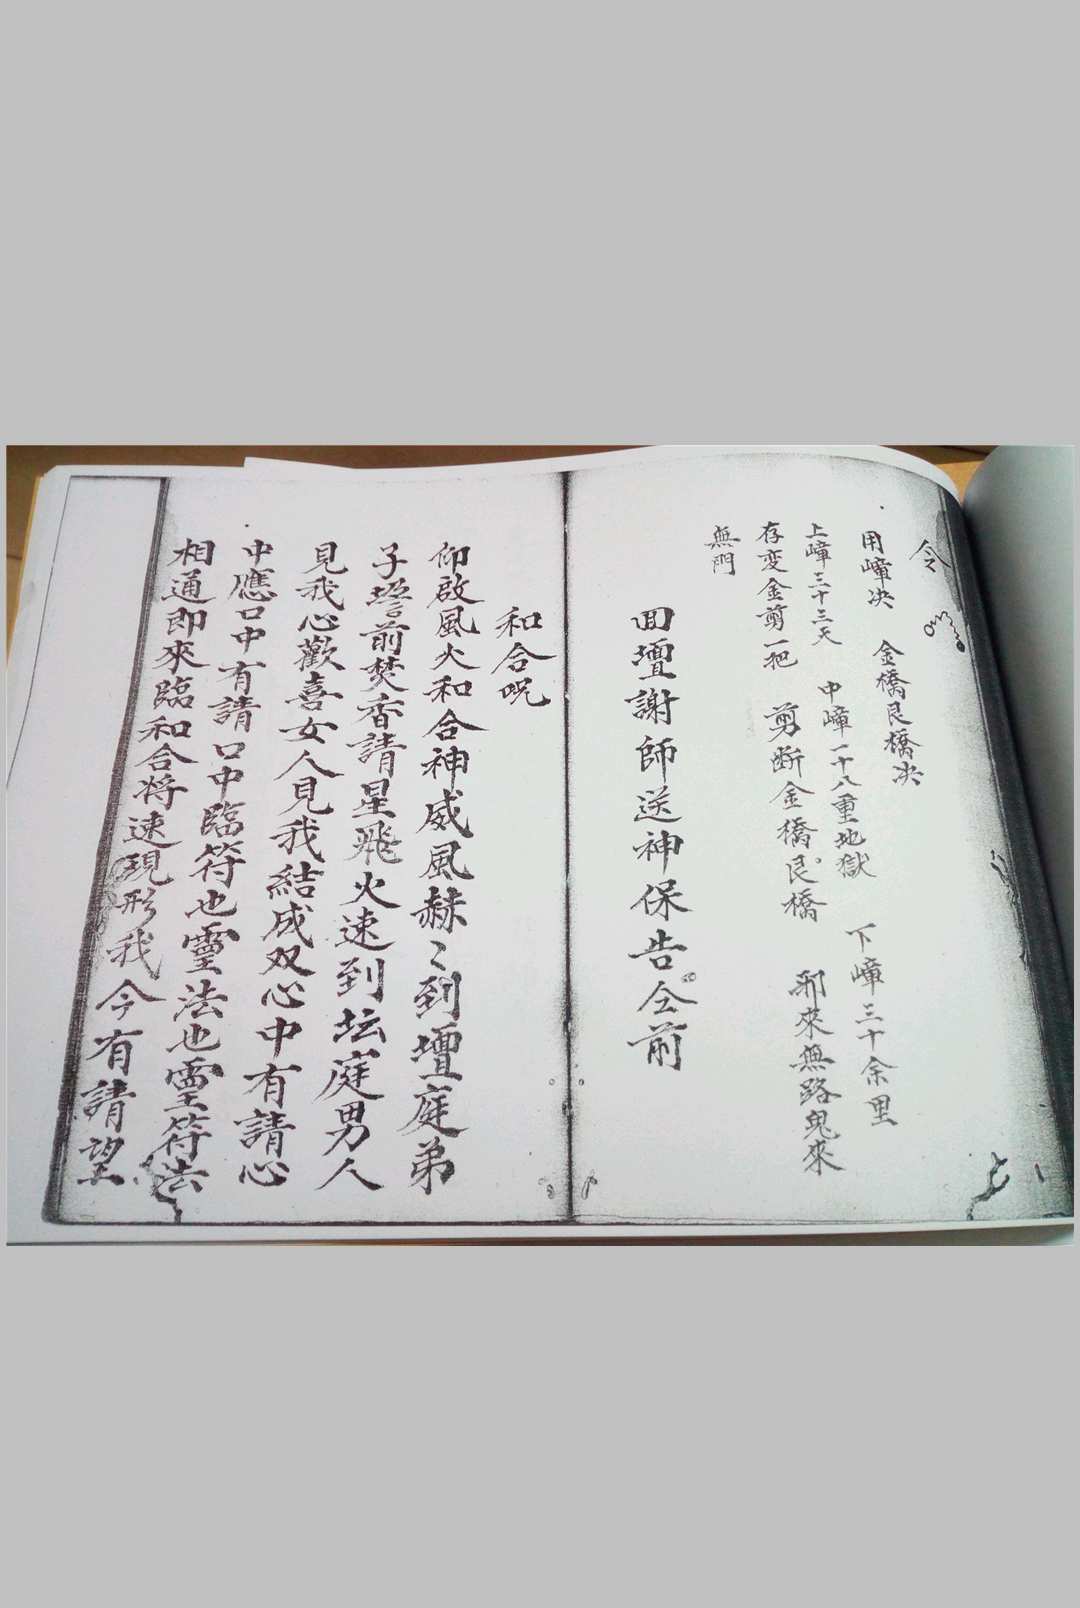 令
用嶂决 金橋艮橋决
上嶂三十三天 中嶂一十八重地獄 下嶂三十余里
存変金剪一把 剪断金橋艮橋 邪來無路鬼來
無門
回壇謝師送神保告仝前
和合呪
仰啟風火和合神威風赫〻到壇庭弟
子壇前焚香請星飛火速到坛庭男人
見我心歡喜女人見我結成双心中有請心
中應口中有請口中臨符也靈法也靈符法
相通即來臨和合将速現形我今有請望